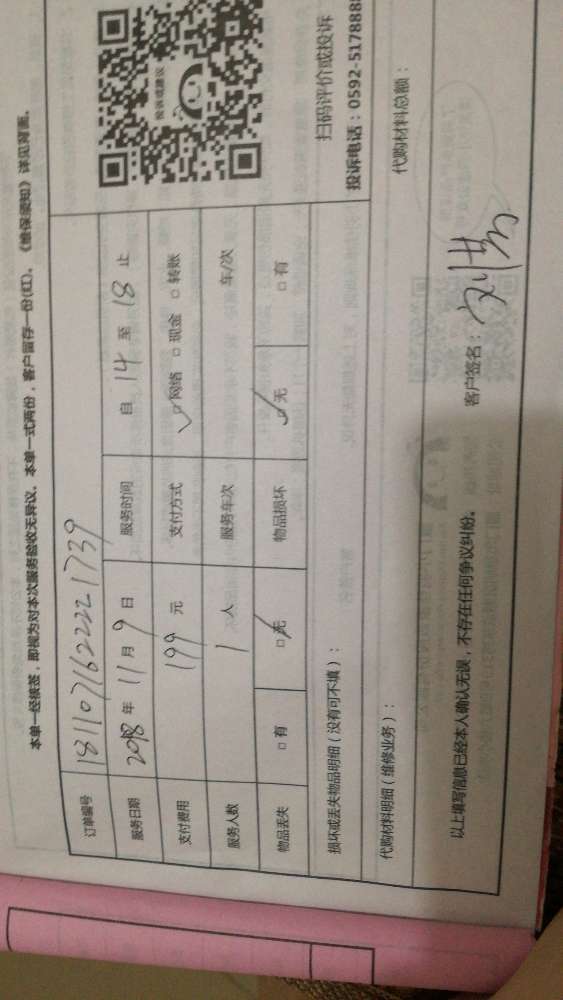 本单一经核签，即视为对本次服务验收无异议。本单一式两份，客户留存一份(红)。《维保须知》详见背面。
订单编号 1811071622221739
服务日期 2018 年 11 月 9 日 服务时间 自 14 至 18 止
支付费用 199 元 支付方式 ☑网络 □现金 □转账
服务人数 1 人 服务车次 车/次
物品丢失 □有 ☑无 物品损坏 ☑无 □有
投诉或建议
扫码评价或投诉
投诉电话：0592-517888
损坏或丢失物品明细（没有可不填）：
代购材料明细（维修业务）： 代购材料总额：
以上填写信息已经本人确认无误，不存在任何争议纠纷。 客户签名：